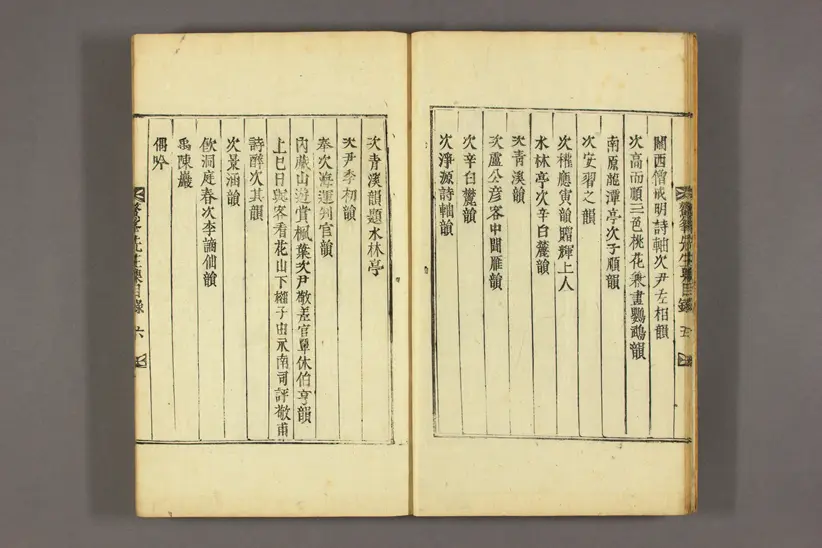 關西僧戒明詩軸次尹左相韻
次高而順三色桃花兼畫鸚鵡韻
南原龍潭亭次子順韻
次安習之韻
次權應寅韻贈輝上人
水林亭次辛白麓韻
次青溪韻
次盧公彦客中聞雁韻
次辛白麓韻
次淨源詩軸韻
先生集目錄 五
次青溪韻題水林亭
次尹季初韻
奉次海運判官韻
內藏山遊賞楓葉次尹敬差官單休伯亨韻
上巳日與客看花山下權子由永南司評敬甫
詩醉次其韻
次景涵韻
飲洞庭春次李謫仙韻
禹陳巖
偶吟
先生集目錄 六